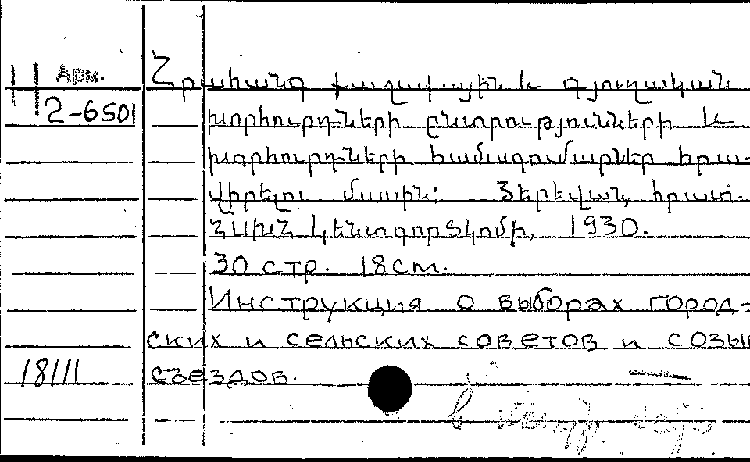 Арм.
2-6501
Հրահանգ քաղաքային և գյուղական
խորհուրդների ընտրությունների և
խորհուրդների համագումարներ հրա-
վիրելու մասին: Յերեվան, հրատ.
ՀՍԽՀ Կենտգործկոմի, 1930.
30 стр. 18 см.
Инструкция о выборах город-
ских и сельских советов и созыв
18111 съездов.